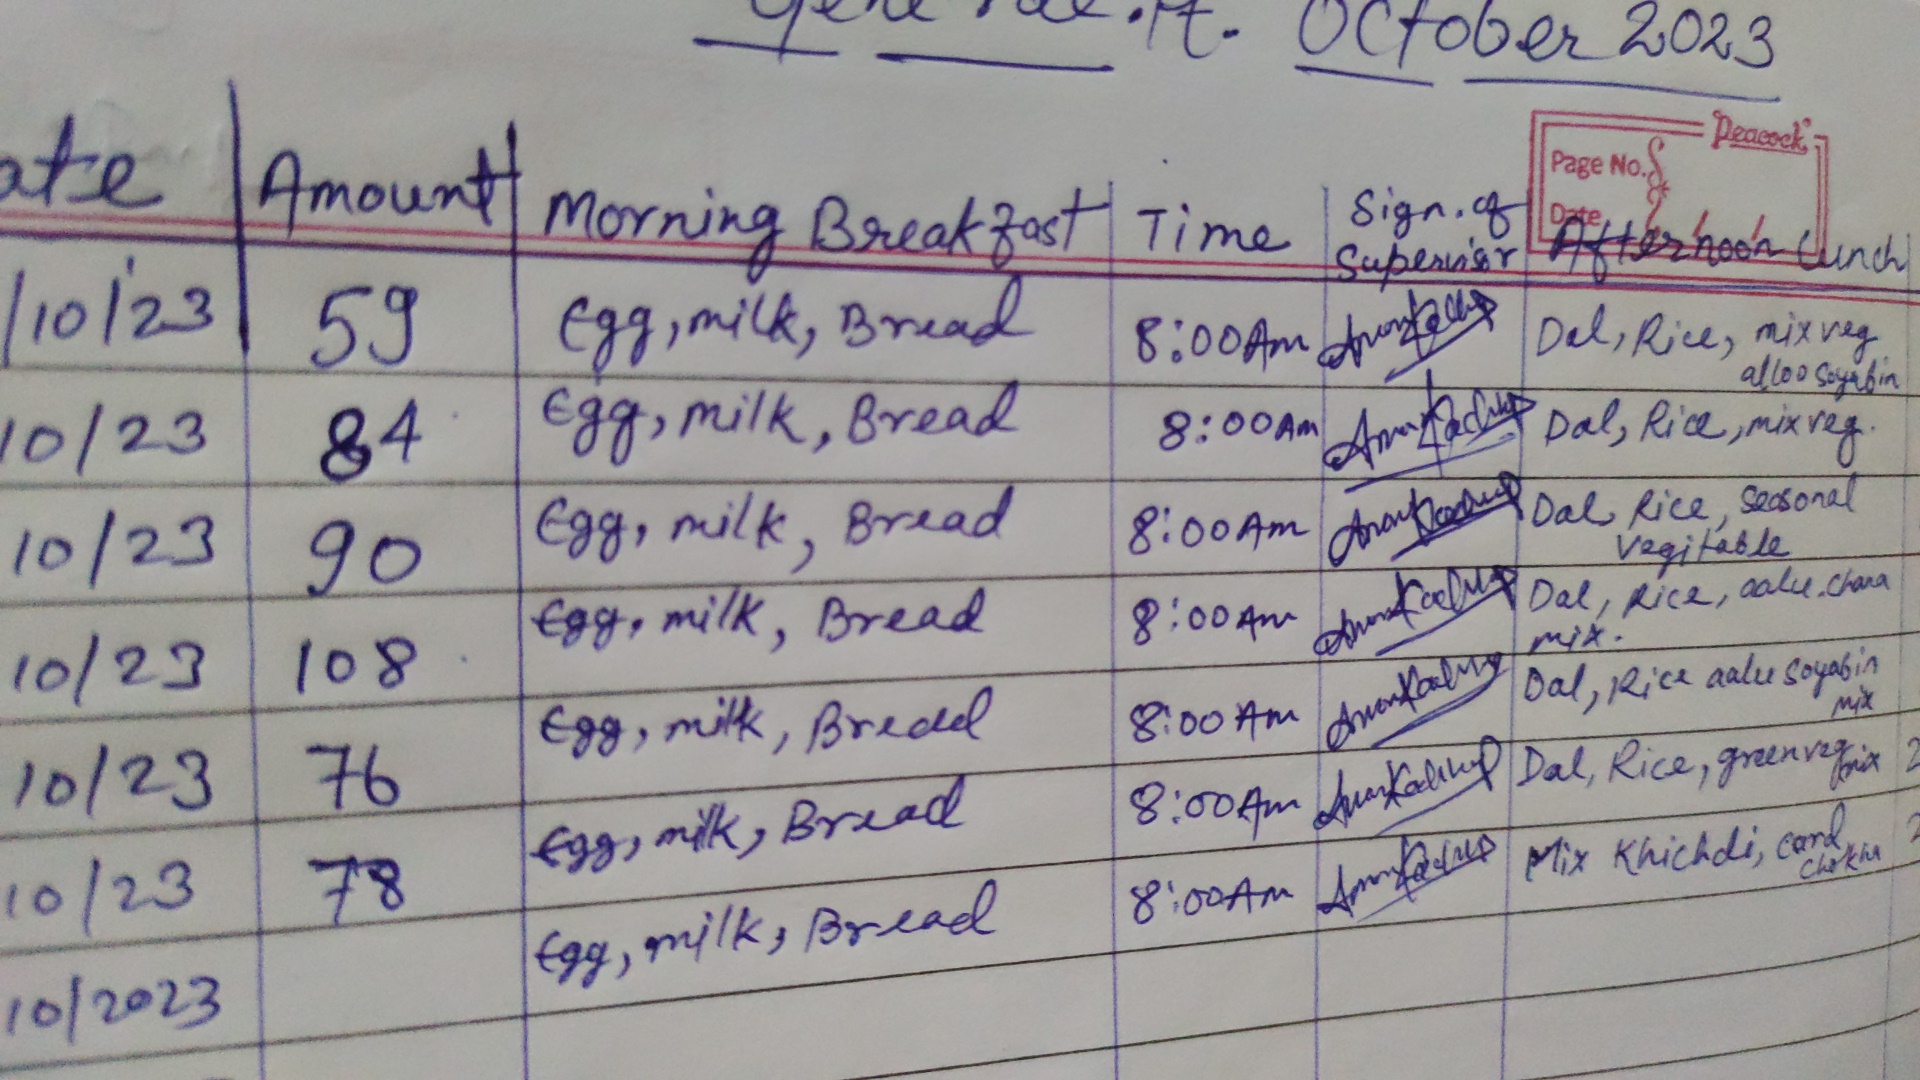 October 2023
Peacock
Page No.
Date
ate Amount Morning Breakfast Time Sign. of Supervisor Afternoon Lunch
/10/23 59 Egg, milk, Bread 8:00 Am Dal, Rice, mix veg
alloo soyabin
10/23 84 Egg, milk, Bread 8:00 Am Dal, Rice, mix veg.
10/23 90 Egg, milk, Bread 8:00 Am Dal, Rice, seasonal
vegitable
10/23 108 Egg, milk, Bread 8:00 Am Dal, Rice, aalu chana
mix.
10/23 76 Egg, milk, Bread 8:00 Am Dal, Rice aalu soyabin
mix
10/23 78 Egg, milk, Bread 8:00 Am Dal, Rice, green veg mix
10/2023 Egg, milk, Bread 8:00 Am Mix Khichdi, card
chokha